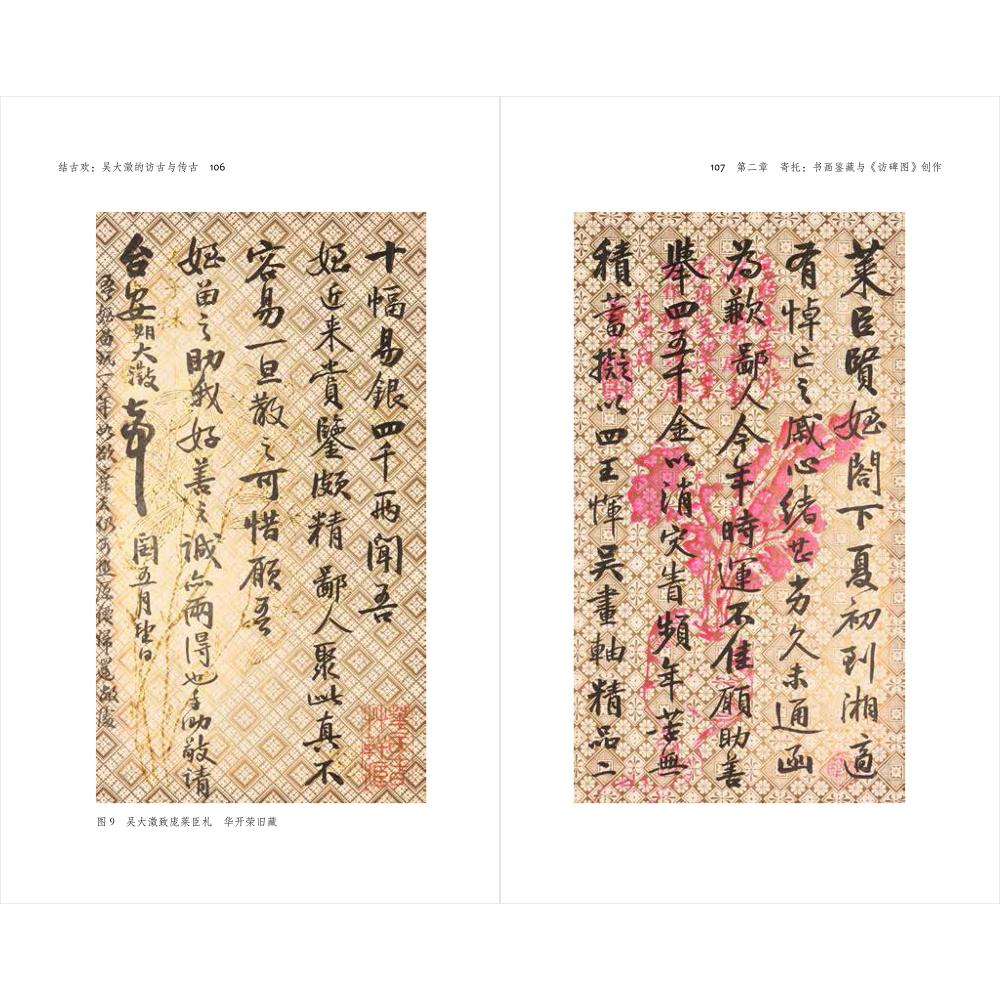 结古欢：吴大澂的访古与传古 106
107 第二章 寄托：书画鉴藏与《访碑图》创作
萊臣賢姪閣下夏初到湘適
有悼亡之戚心緒久未通函
為歉鄙人今年時運不佳願助善
舉四五千金以消灾眚頻年苦無
積蓄擬以四王惲吳畫軸精品二
十幅易銀四千兩聞吾
姪近来賞鑒頗精鄙人聚此真不
容易一旦散之可惜願吾
姪留之助我好善之誠亦兩得也手泐敬請
台安期大澂頓首 閏五月望日
吾姪留玩一二年如欲
图 9 吴大澂致庞莱臣札 华开荣旧藏